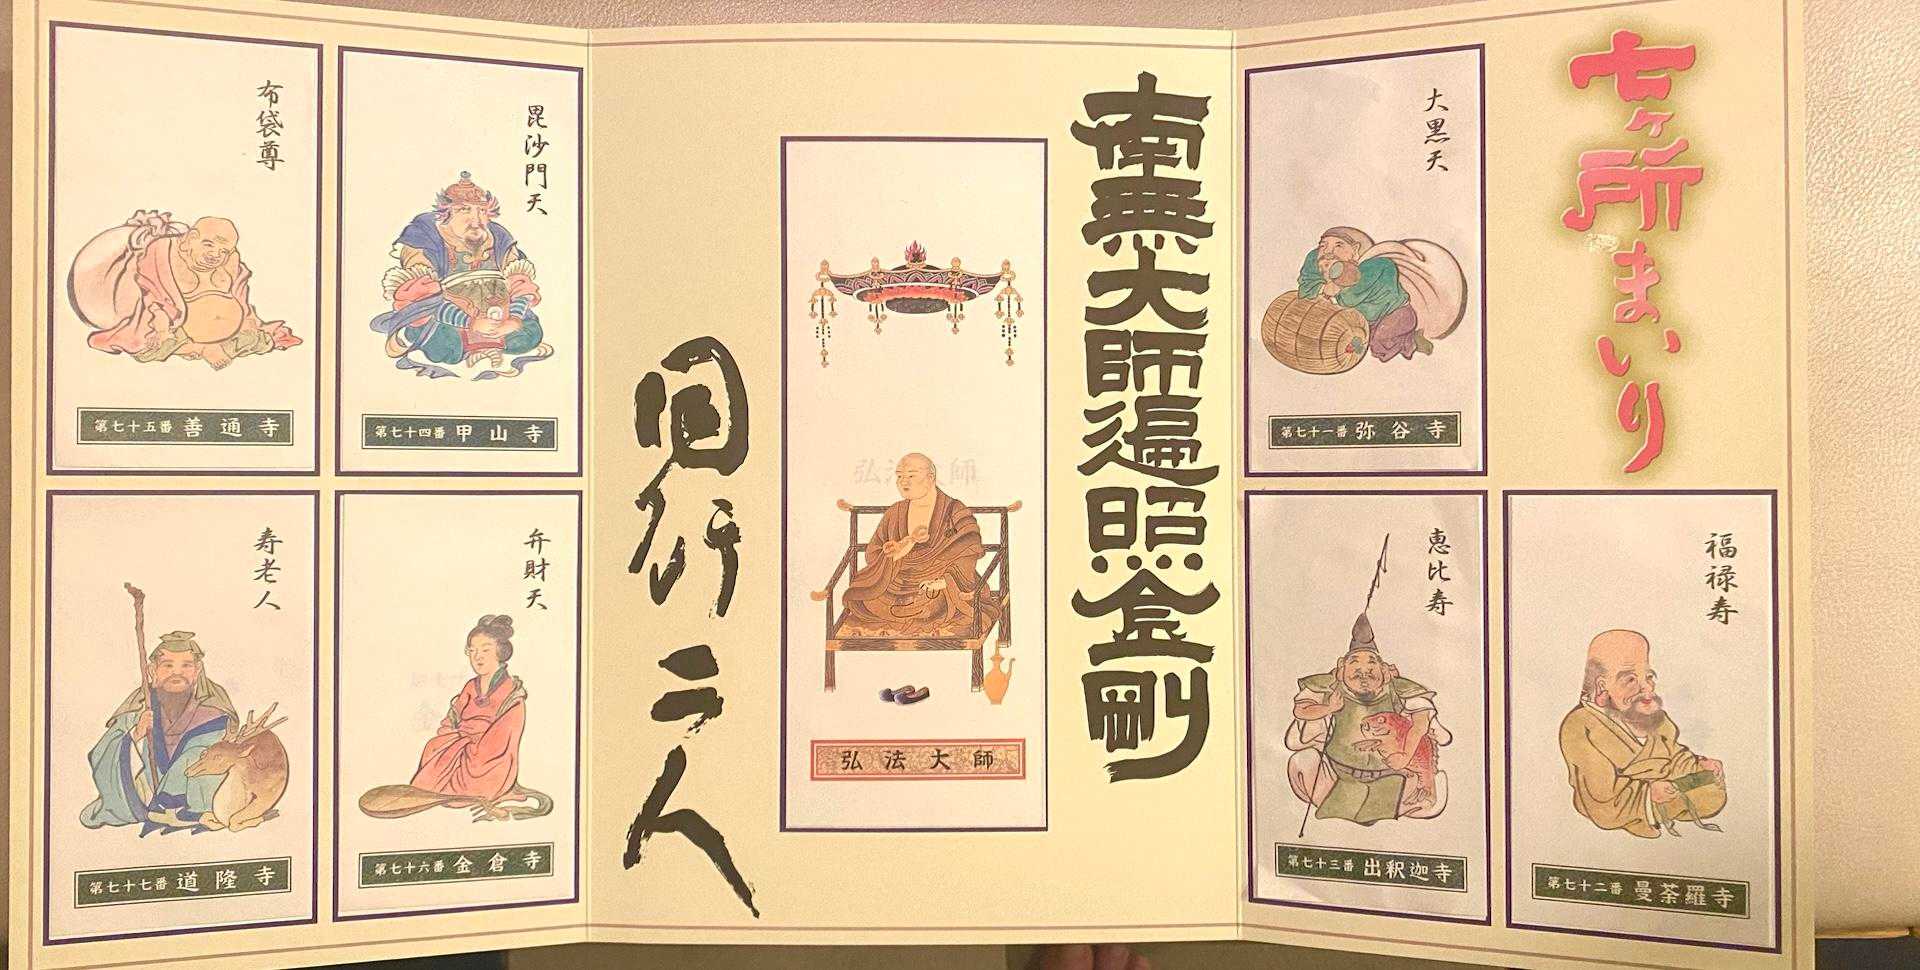 七ヶ所まいり
大黒天
第七十一番 弥谷寺
福禄寿
第七十二番 曼荼羅寺
恵比寿
第七十三番 出釈迦寺
南無大師遍照金剛
弘法大師
弘法大師
同行二人
毘沙門天
第七十四番 甲山寺
布袋尊
第七十五番 善通寺
弁財天
第七十六番 金倉寺
寿老人
第七十七番 道隆寺